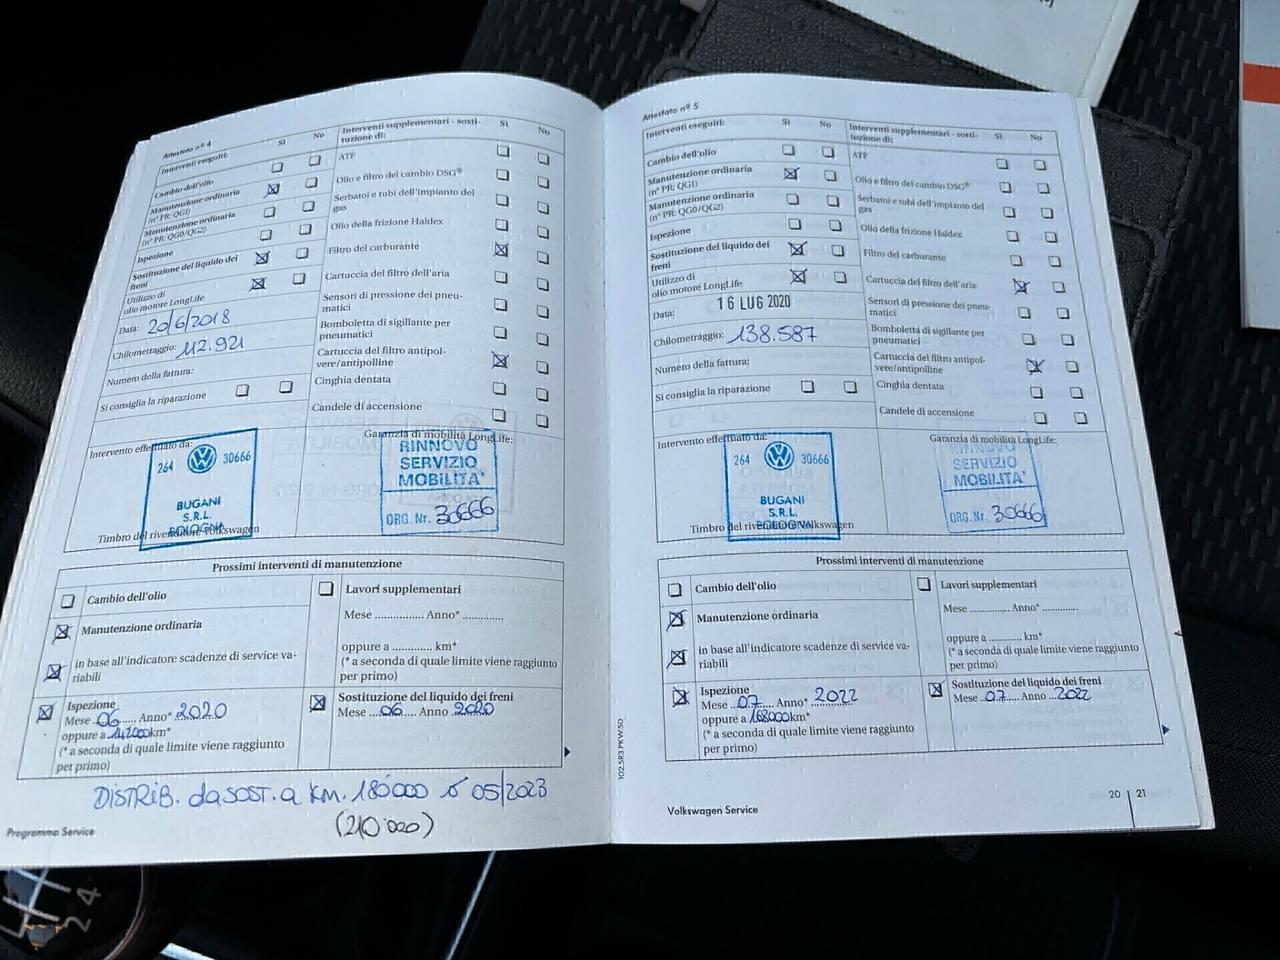 Attestato nº 4
Interventi eseguiti:
Sì
No
Cambio dell'olio
Manutenzione ordinaria
(nº PR: QG1)
Manutenzione ordinaria
(nº PR: QG0/QG2)
Ispezione
Sostituzione del liquido dei
freni
Utilizzo di
olio motore LongLife
Data: 20/6/2018
Chilometraggio: 112.921
Numero della fattura:
Si consiglia la riparazione
Interventi supplementari - sosti-
tuzione di:
Sì
No
ATF
Olio e filtro del cambio DSG®
Serbatoi e tubi dell'impianto del
gas
Olio della frizione Haldex
Filtro del carburante
Cartuccia del filtro dell'aria
Sensori di pressione dei pneu-
matici
Bomboletta di sigillante per
pneumatici
Cartuccia del filtro antipol-
vere/antipolline
Cinghia dentata
Candele di accensione
Intervento effettuato da:
264 30666
BUGANI
S.R.L.
BOLOGNA
Timbro del rivenditore Volkswagen
Garanzia di mobilità LongLife:
RINNOVO
SERVIZIO
MOBILITA'
ORG. Nr. 30666
Prossimi interventi di manutenzione
Cambio dell'olio
Manutenzione ordinaria
in base all'indicatore scadenze di service va-
riabili
Ispezione
Mese ..06...... Anno* 2020
oppure a 142000km*
(* a seconda di quale limite viene raggiunto
per primo)
Lavori supplementari
Mese ................ Anno* .............
oppure a ............ km*
(* a seconda di quale limite viene raggiunto
per primo)
Sostituzione del liquido dei freni
Mese ....06..... Anno .2020
DISTRIB. da SOST. a KM. 180000 o 05/2023
(210.000)
Programma Service
Attestato nº 5
Interventi eseguiti:
Sì
No
Cambio dell'olio
Manutenzione ordinaria
(nº PR: QG1)
Manutenzione ordinaria
(nº PR: QG0/QG2)
Ispezione
Sostituzione del liquido dei
freni
Utilizzo di
olio motore LongLife
Data: 16 LUG 2020
Chilometraggio: 138.587
Numero della fattura:
Si consiglia la riparazione
Interventi supplementari - sosti-
tuzione di:
Sì
No
ATF
Olio e filtro del cambio DSG®
Serbatoi e tubi dell'impianto del
gas
Olio della frizione Haldex
Filtro del carburante
Cartuccia del filtro dell'aria
Sensori di pressione dei pneu-
matici
Bomboletta di sigillante per
pneumatici
Cartuccia del filtro antipol-
vere/antipolline
Cinghia dentata
Candele di accensione
Intervento effettuato da:
264 30666
BUGANI
S.R.L.
BOLOGNA
Timbro del rivenditore Volkswagen
Garanzia di mobilità LongLife:
RINNOVO
SERVIZIO
MOBILITA'
ORG. Nr. 30666
Prossimi interventi di manutenzione
Cambio dell'olio
Manutenzione ordinaria
in base all'indicatore scadenze di service va-
riabili
Ispezione
Mese ..07...... Anno* 2022
oppure a 168000km*
(* a seconda di quale limite viene raggiunto
per primo)
Lavori supplementari
Mese .............. Anno* .............
oppure a ............ km*
(* a seconda di quale limite viene raggiunto
per primo)
Sostituzione del liquido dei freni
Mese ..07..... Anno ...2022
102.5R3.PKW.50
Volkswagen Service
20 | 21
2 4